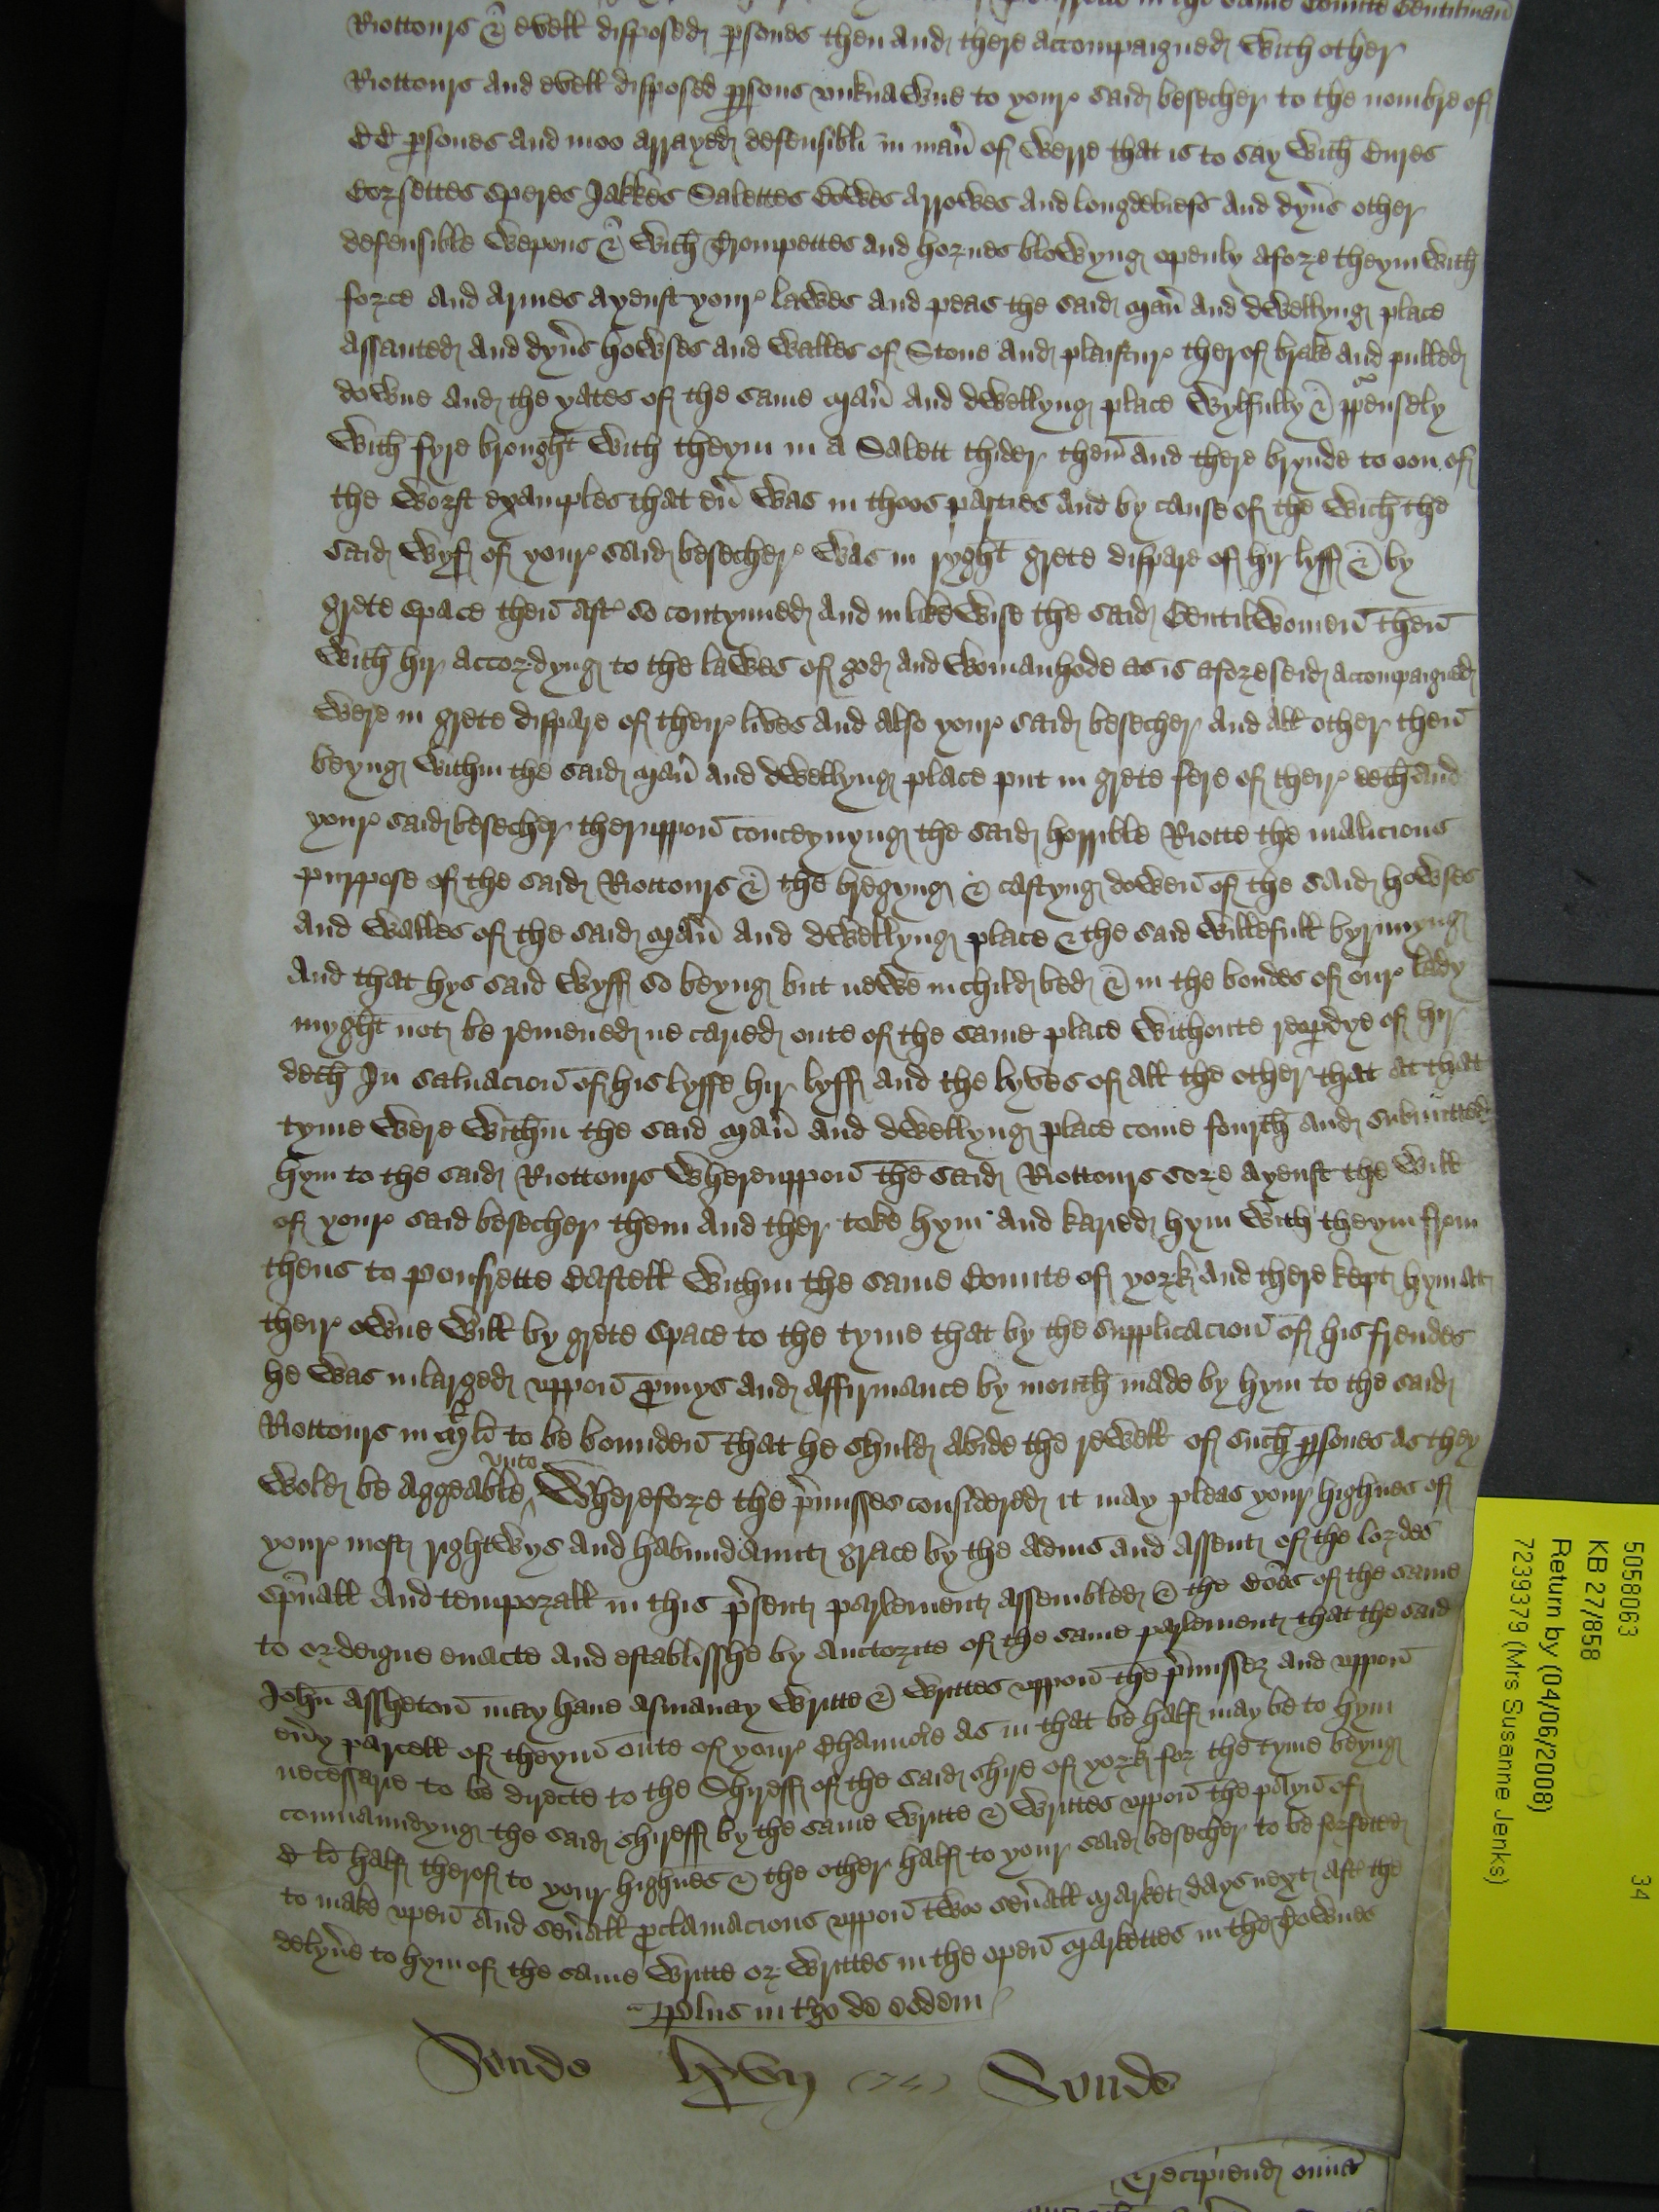 in the same Comite Gentilman
Riottours & evell disposed psones then and there accompaigned with other
Riottours and evell disposed psons unknawne to your said besecher to the nombre of
CC psones and moo arrayed defensibli in man of werre that is to say with Cures
Corsettes speres Jakkes Salettes Bowes arrowes and longdebiefs and dyvs other
defensible wepons & with Trompettes and hornes blowyng openly afore theym with
force and armes ayenst your lawes and peas the said man and dwellyng place
assauted and dyvs howses and walles of Stone and plaistur therof brake and pulled
downe and the yates of the same man and dwellyng place wylfully & ppensely
with fyre brought with theym in a Salett thider then and there brynde to oon of
the worst examples that ev was in thoos parties and by cause of the wich the
said wyf of your said besecher was in ryght grete dispare of hir lyff & by
grete space then aft so contynued and in like wise the said Gentilwomen then
with hir accordyng to the lawes of god and womanhode as is aforeseid accompaigned
were in grete dispare of their lives and also your said besecher and all other then
beyng within the said man and dwellyng place put in grete fere of their deth And
your said besecher theruppon conceyvyng the said horrible Riotte the malicious
purpose of the said Riottours & the bregyng & castyng dowen of the said howses
and walles of the said man and dwellyng place & the said willefull byrnnyng
and that hys said wyff so beyng but newe in child bed & in the bondes of our lady
myght not be remeued ne caried oute of the same place withoute jeopdye of hir
deth In saluacion of his lyffe hir lyff and the lyves of all the other that at that
tyme were within the said man and dwellyng place come fourth and submitted
hym to the said Riottours whereuppon the said Riottours sore ayenst the will
of your said besecher them and ther toke hym and karied hym with theym from
thens to Pounfrette Castell within the same Comite of york and there kept hym att
their owne will by grete space to the tyme that by the supplicacion of his frendes
he was inlarged uppon pmys and affirmance by mouth made by hym to the said
Riottours in Mˡ li to be bounden that he shuld abide the rewell of such psones as they
wold be aggeable unto Wherefore the pmisses considered it may pleas your highnes of
your most rightwys and habundaunt grace by the advis and assent of the lordes
spuall and temporall in this psent parlement assembled & the Coes of the same
to ordeigne enacte and establisshe by auctorite of the same parlement that the said
John Assheton may have asmanay writte & writtes uppon the pmissez and uppon
evy parcell of theym oute of your Chauncle as in that be half may be to hym
necessarie to be directe to the Shireff of the said shire of york for the tyme beyng
commaundyng the said shireff by the same writte & writtes uppon the payn of
C li half therof to your highnes & the other half to your said besecher to be forfeted
to make open and sevall pclamacions uppon twoo sevall market days next aft the
delyve to hym of the same writte or writtes in the open markettes in the Townes
Plus in tgo de eodem
Sonde lxvij (34) Sonde
& recipiend omia
5058063 34
KB 27/858
Return by (04/06/2008)
7239379 (Mrs Susanne Jenks)